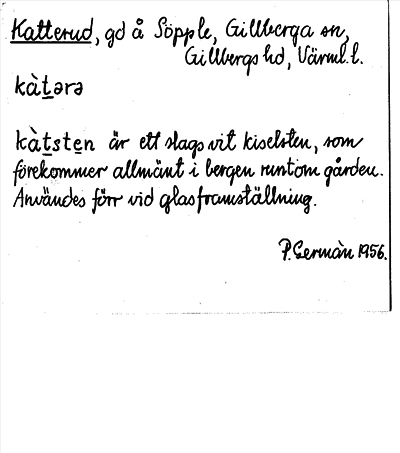 Katterud, gd å Söpple, Gillberga sn,
Gillbergs hd, Värml. l.
kàt̲ərə
kàt̲ste̲n är ett slags vit kiselsten, som
förekommer allmänt i bergen runtom gården.
Användes förr vid glasframställning.
P. Germàn 1956.